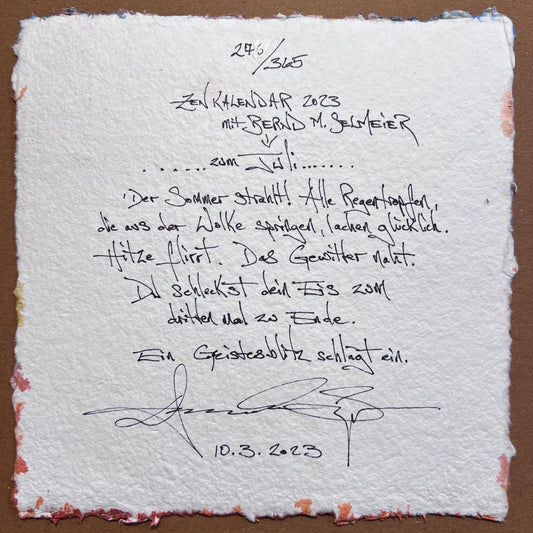 276/365
ZENKALENDAR 2023
mit BERND M. SELMEIER
......zum Juli.......
Der Sommer strahlt! Alle Regentropfen,
die aus der Wolke springen, lachen glücklich.
Hitze flirrt. Das Gewitter naht.
Du schleckst dein Eis zum
dritten mal zu Ende.
Ein Geistesblitz schlägt ein.
10.3.2023